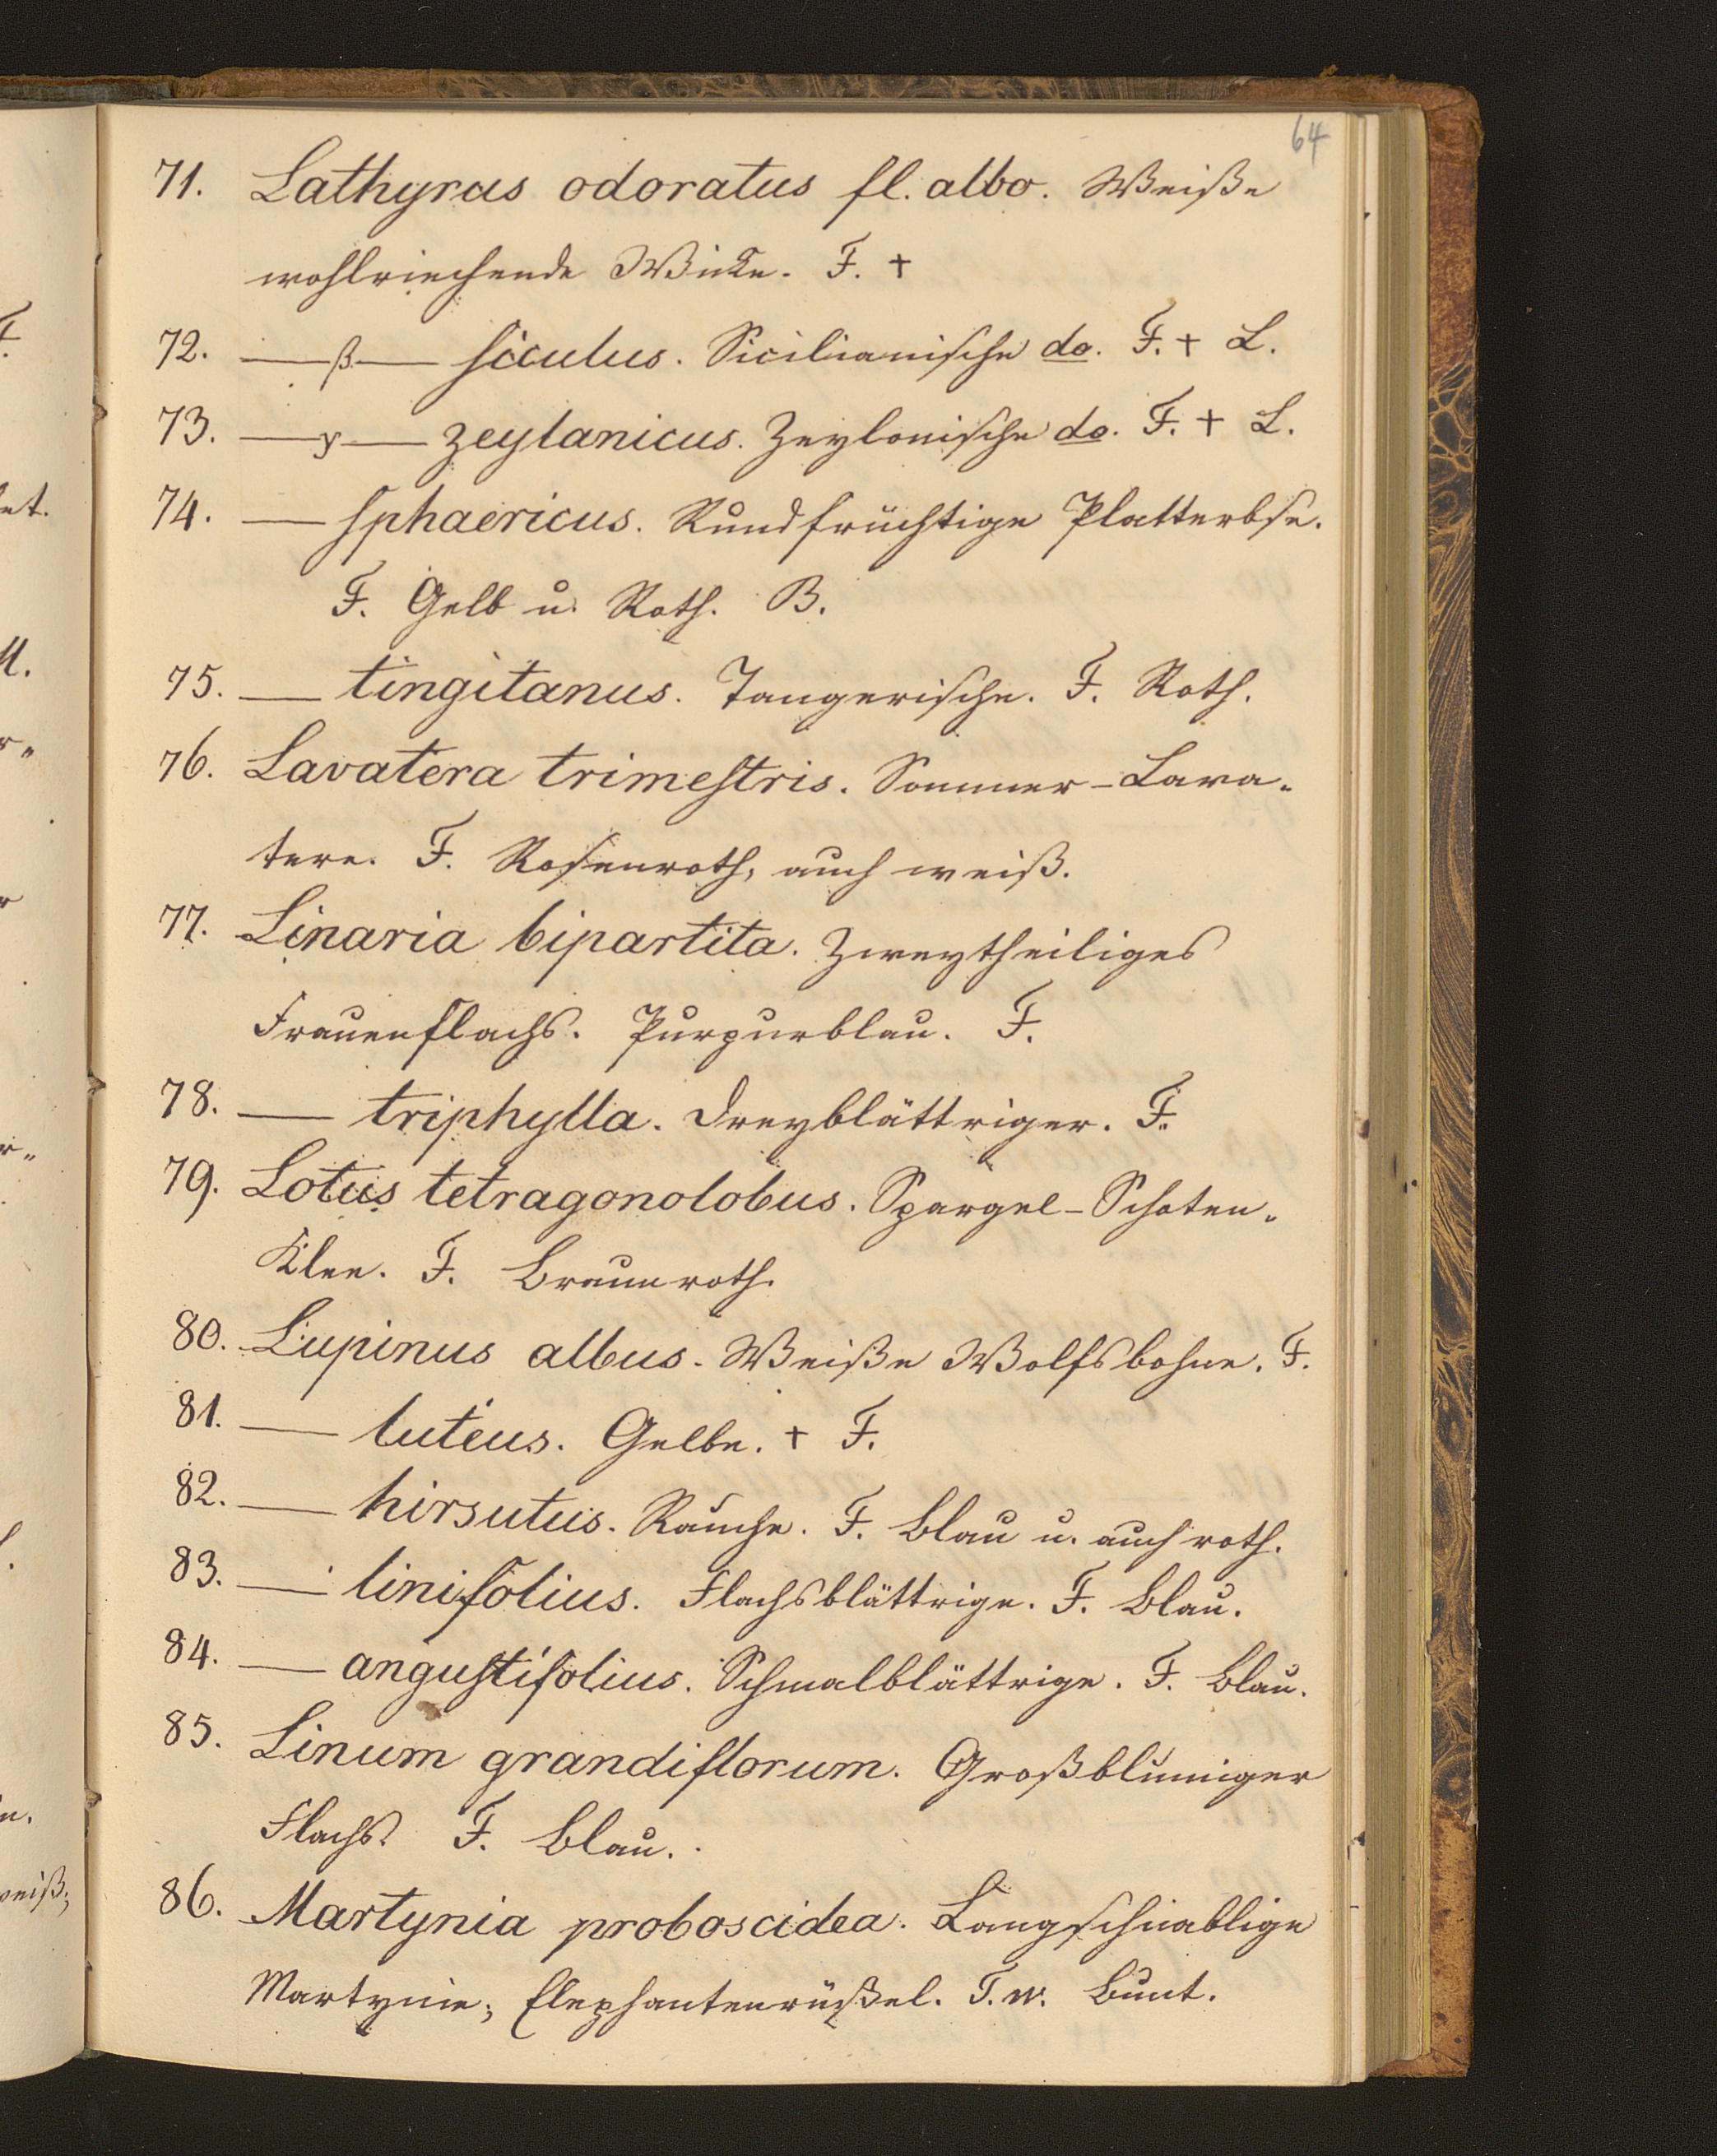 64
71. Lathyrus odoratus fl. albo. Weiße
wohlriechende Wicke. F. +
72. —ß— siculus. Sicilianische do. F. + L.
73. —y— zeylanicus. Zeylonische do. F. + L.
74. — sphaericus. Rundfrüchtige Platterbse.
F. Gelb u. Roth. B.
75. — tingitanus. Tangerische. F. Roth.
76. Lavatera trimestris. Sommer-Lava-
tere. F. Rosenroth, auch weiß.
77. Linaria bipartita. Zweytheiliges
Frauenflachs. Purpurblau. F.
78. — triphylla. Dreyblättriger. F.
79. Lotus tetragonolobus. Spargel-Schoten-
Klee. F. Braunroth.
80. Lupinus albus. Weiße Wolfsbohne. F.
81. — luteus. Gelbe. + F.
82. — hirsutus. Rauche. F. Blau u. auch roth.
83. — linifolius. Flachsblättrige. F. Blau.
84. — angustifolius. Schmalblättrige. F. Blau.
85. Linum grandiflorum. Großblumiger
Flachs. F. Blau.
86. Martynia proboscidea. Langschnablige
Martynie; Elephantenrüßel. T. w. Bunt.